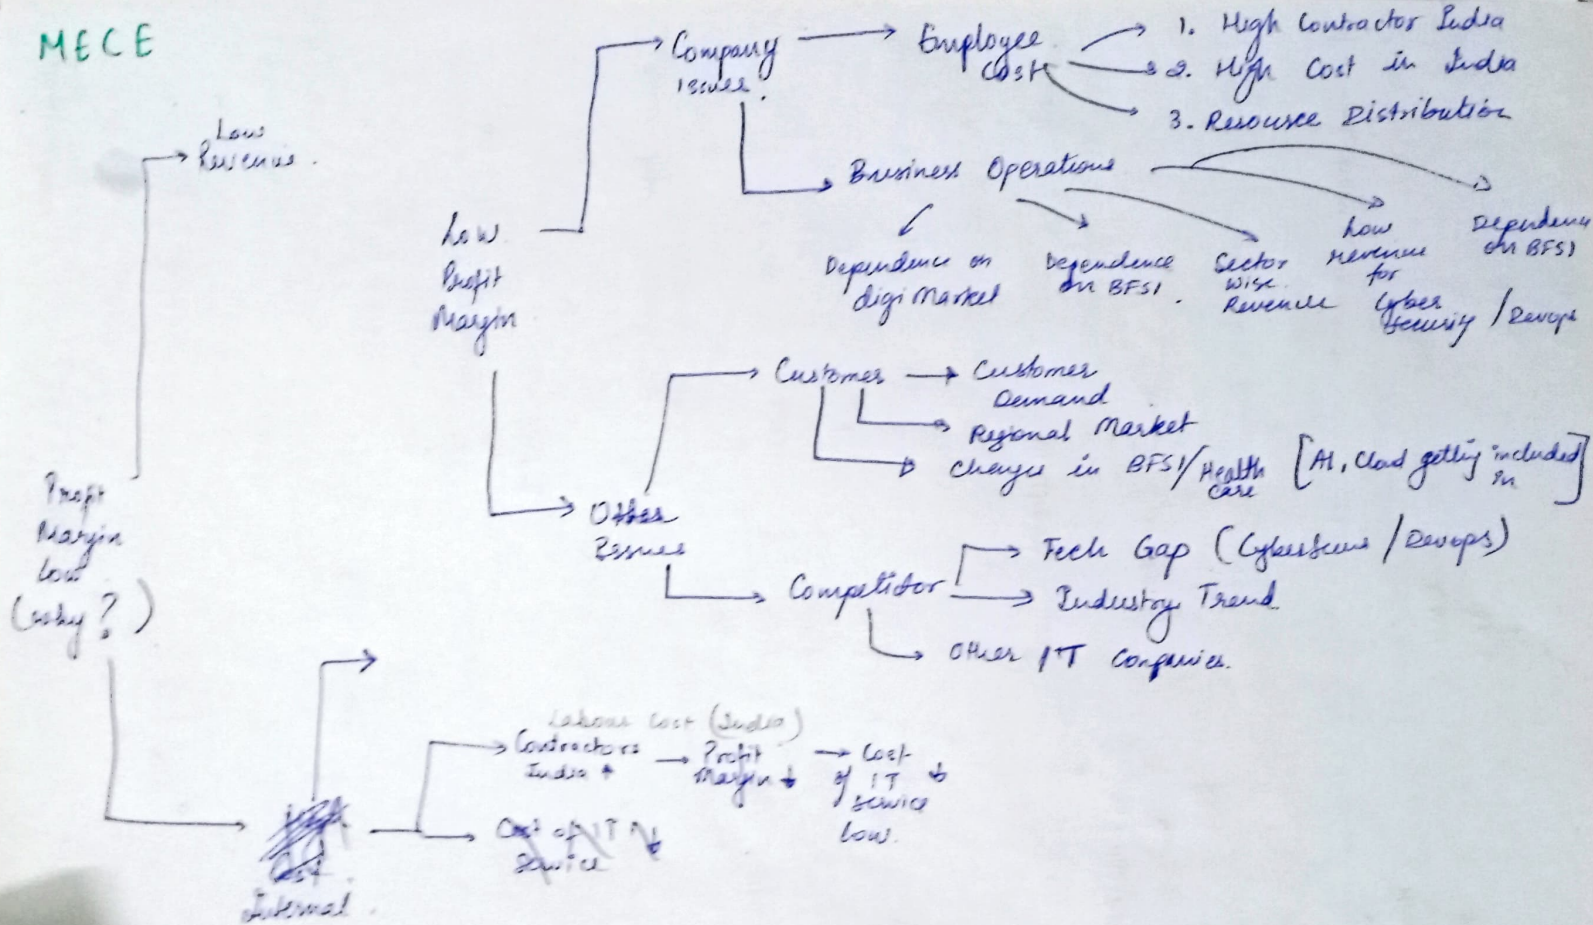 MECE
Low
Revenue.
Low
Profit
Margin
Company
issues.
Employee
Cost
1. High Contractor India
2. High Cost in India
3. Resource Distribution
Business Operations
Dependence on
digi Market
Dependence
on BFSI.
Sector
wise
Revenue
Low
revenue
for
Cyber
Security / Devops
Dependence
on BFSI
Other
Issues
Customer
Customer
Demand
Regional Market
Change in BFSI/Health
Care
[AI, Cloud getting included
in]
Competitor
Tech Gap (Cybersecure / Devops)
Industry Trend
Other IT Companies.
Profit
Margin
Low
(why?)
Internal.
Labour Cost (India)
Contractors
India ↑
Profit
Margin ↓
Cost
of IT ↓
service
low.
Cost of IT ↓
Service